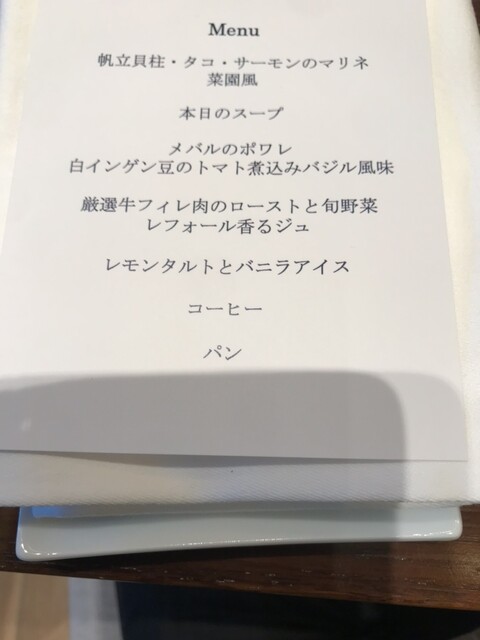 Menu
帆立貝柱・タコ・サーモンのマリネ
菜園風
本日のスープ
メバルのポワレ
白インゲン豆のトマト煮込みバジル風味
厳選牛フィレ肉のローストと旬野菜
レフォール香るジュ
レモンタルトとバニラアイス
コーヒー
パン